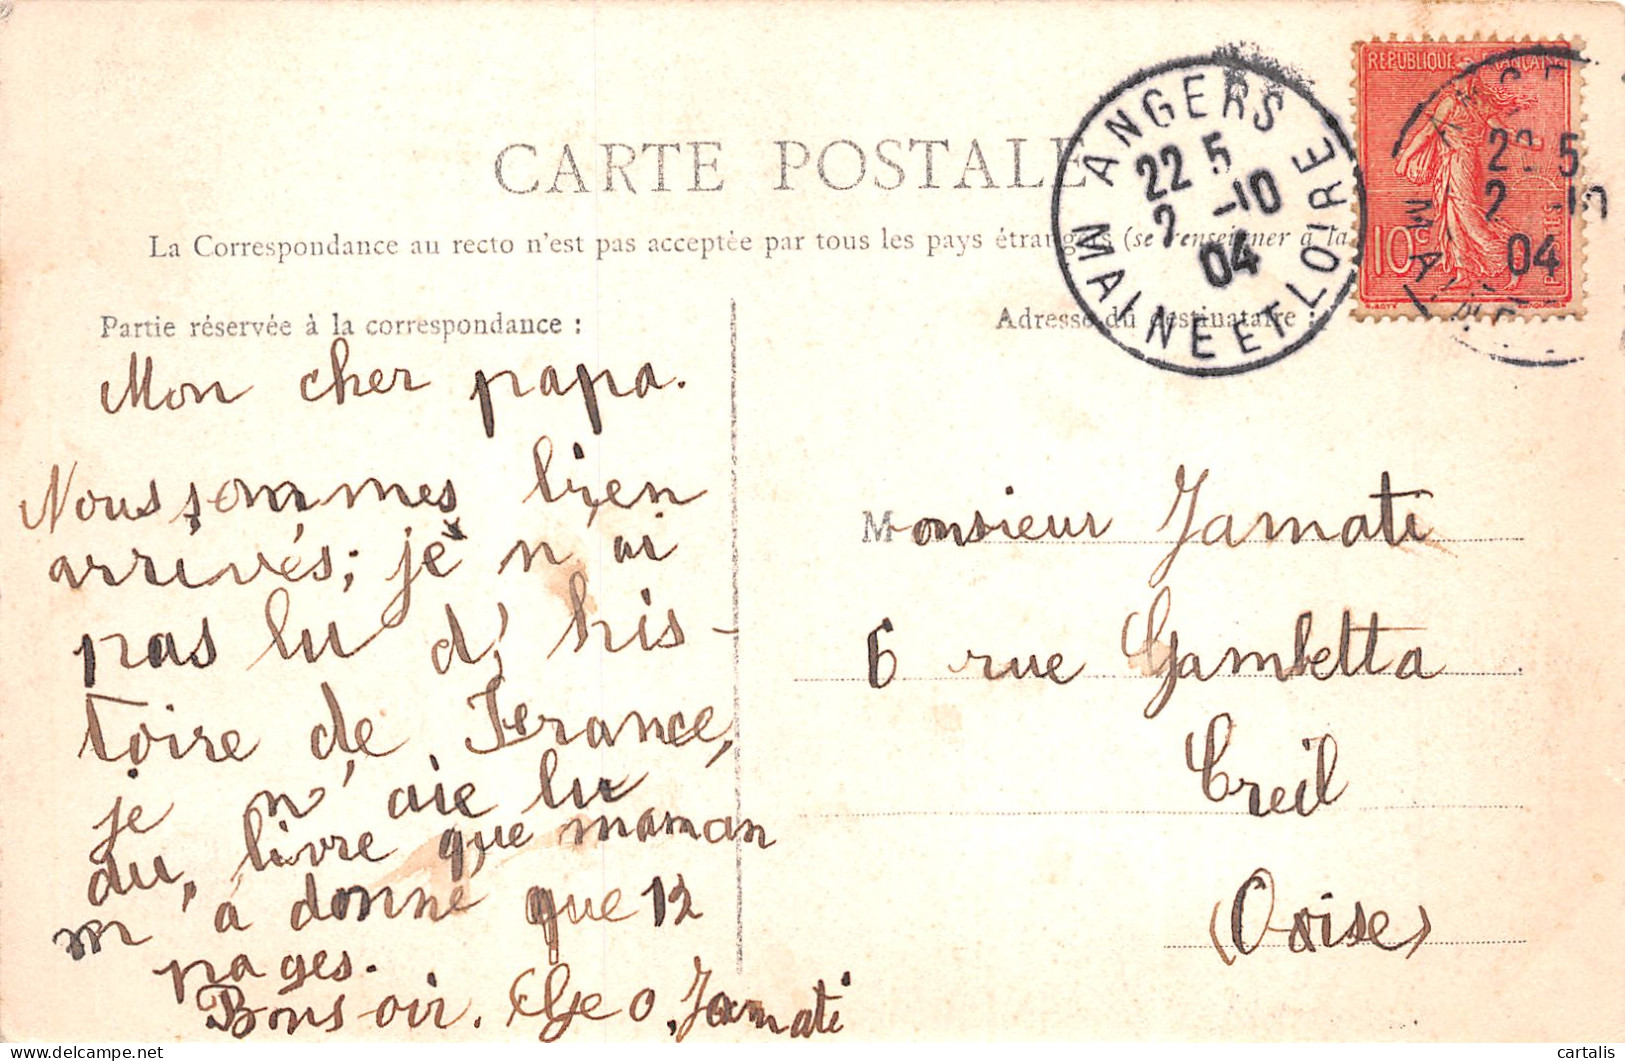 CARTE POSTALE
La Correspondance au recto n'est pas acceptée par tous les pays étrangers (se renseigner à la
Partie réservée à la correspondance :
Adresse du destinataire :
ANGERS
22 5
2 -10
04
MAINE ET LOIRE
REPUBLIQUE FRANÇAISE
10c
POSTES
22 5
2 -10
04
Mon cher papa.
Nous sommes bien
arrivés; je n ai
pas lu d' his-
toire de France,
je n' aie lu
du livre que maman
m' a donné que 12
pages.
Bonsoir. Geo Jamati
Monsieur Jamati
6 rue Gambetta
Creil
(Oise)
cartalis